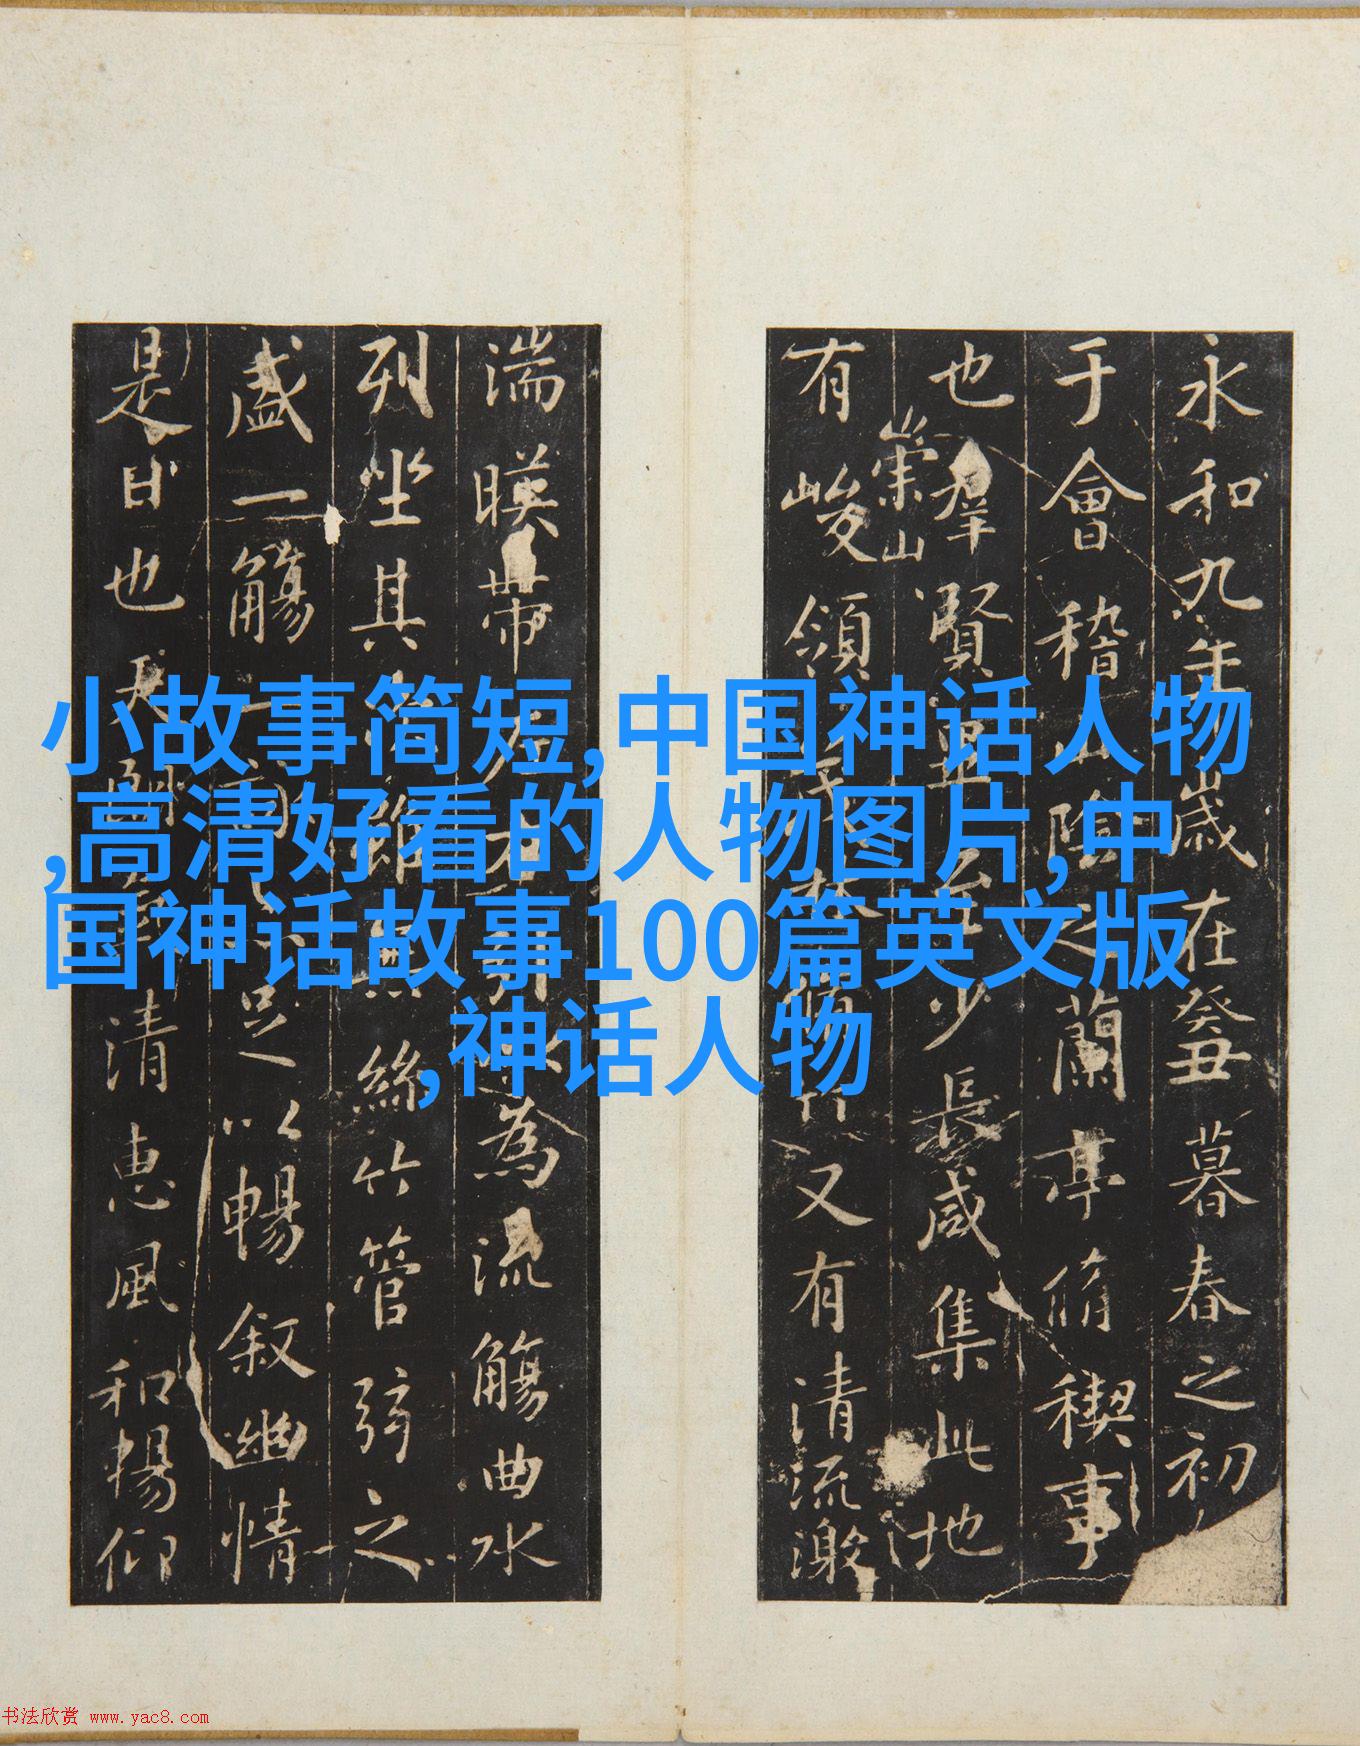 永和九年歳在癸丑暮春之初
于會稽山陰之蘭亭脩禊事
也羣賢畢至少長咸集此地
有崇山峻領林脩竹又有清流激
湍暎帶左右引以為流觴曲水
列坐其次雖無絲竹管弦之
盛一觴一詠足以暢叙幽情
是日也天朗氣清惠風和暢仰
小故事简短,中国神话人物
,高清好看的人物图片,中
国神话故事100篇英文版
,神话人物
书法欣赏 www.yac8.com